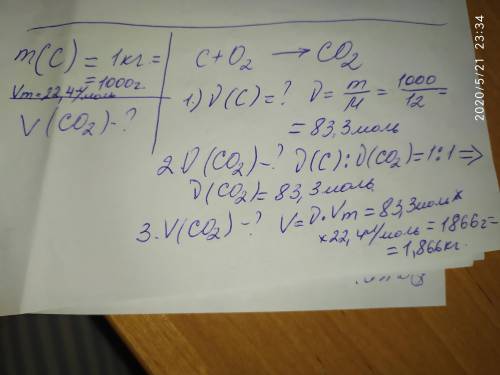 m(C) = 1кг =
= 1000г.
Vm=22,4л/моль
V(CO₂)-?
C + O₂ → CO₂
1.) ν(C)=? ν = m/M = 1000/12 =
= 83,3моль
2. ν(CO₂)-? ν(C):ν(CO₂)=1:1 =>
ν(CO₂)= 83,3моль
3. V(CO₂)-? V=ν·Vm = 83,3моль×
×22,4л/моль = 1866г=
= 1,866кг.
2020/5/21 23:34